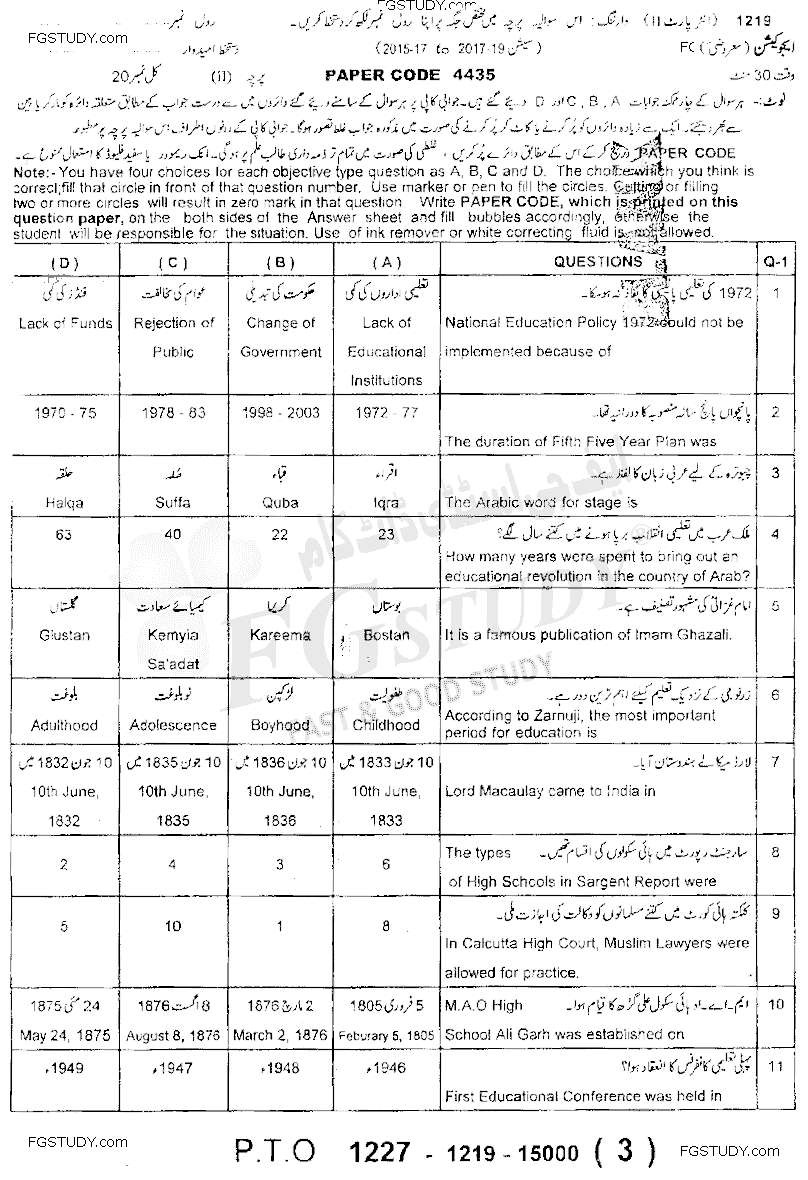 FGSTUDY.com
1219 (انٹر پارٹ II) وارننگ: اس سوالیہ پرچہ میں مختص جگہ پر اپنا رول نمبر لکھ کر دستخط کریں۔ رول نمبر
FGSTUDY.com
ایجوکیشن (معروضی) FC (سیشن 19-2017 to 17-2015) دستخط امیدوار
وقت 30 منٹ PAPER CODE 4435 پرچہ (II) کل نمبر 20
نوٹ:- ہر سوال کے چار ممکنہ جوابات A , B , C اور D دیئے گئے ہیں۔ جوابی کاپی پر ہر سوال کے سامنے دیئے گئے دائروں میں سے درست جواب کے مطابق متعلقہ دائرہ کو مارکر یا پین
سے بھر دیجئے۔ ایک سے زیادہ دائروں کو پُر کرنے یا کاٹ کر پُر کرنے کی صورت میں مذکورہ جواب غلط تصور ہوگا۔ جوابی کاپی کے دونوں اطراف اس سوالیہ پرچہ پر مطبوعہ
PAPER CODE درج کر کے اس کے مطابق دائرے پُر کریں، غلطی کی صورت میں تمام تر ذمہ داری طالب علم پر ہوگی۔ انک ریموور یا سفید فلیوڈ کا استعمال ممنوع ہے۔
Note:- You have four choices for each objective type question as A, B, C and D. The choice which you think is
correct;fill that circle in front of that question number. Use marker or pen to fill the circles. Cutting or filling
two or more circles will result in zero mark in that question Write PAPER CODE, which is printed on this
question paper, on the both sides of the Answer sheet and fill bubbles accordingly, otherwise the
student will be responsible for the situation. Use of ink remover or white correcting fluid is not allowed.
(D) (C) (B) (A) QUESTIONS Q-1
فنڈز کی کمی عوام کی مخالفت حکومت کی تبدیلی تعلیمی اداروں کی کمی 1972 کی تعلیمی پالیسی کا نفاذ نہ ہو سکا۔ 1
Lack of Funds Rejection of Change of Lack of National Education Policy 1972 could not be
Public Government Educational implemented because of
Institutions
1970 - 75 1978 - 83 1998 - 2003 1972 - 77 پانچواں پانچ سالہ منصوبہ کا دورانیہ تھا۔ 2
The duration of Fifth Five Year Plan was
حلقہ صُفہ قباء اقراء چبوترہ کے لیے عربی زبان کا لفظ ہے۔ 3
Halqa Suffa Quba Iqra The Arabic word for stage is
63 40 22 23 ملک عرب میں تعلیمی انقلاب برپا ہونے میں کتنے سال لگے؟ 4
How many years were spent to bring out an
educational revolution in the country of Arab?
گلستاں کیمیائے سعادت کریما بوستاں امام غزالی کی مشہور تصنیف ہے۔ 5
Glustan Kemyia Kareema Bostan It is a famous publication of Imam Ghazali.
Sa'adat
بلوغت نوبلوغت لڑکپن طفولیت زرنوجی کے نزدیک تعلیم کیلئے اہم ترین دور ہے۔ 6
Adulthood Adolescence Boyhood Childhood According to Zarnuji, the most important
period for education is
10 جون 1832 میں 10 جون 1835 میں 10 جون 1836 میں 10 جون 1833 میں لارڈ میکالے ہندوستان آیا۔ 7
10th June, 10th June, 10th June, 10th June, Lord Macaulay came to India in
1832 1835 1836 1833
2 4 3 6 The types سارجنٹ رپورٹ میں ہائی سکولوں کی اقسام تھیں۔ 8
of High Schools in Sargent Report were
5 10 1 8 کلکتہ ہائی کورٹ میں کتنے مسلمانوں کو وکالت کی اجازت ملی۔ 9
In Calcutta High Court, Muslim Lawyers were
allowed for practice.
24 مئی 1875 8 اگست 1876 2 مارچ 1876 5 فروری 1805 M.A.O High ایم۔اے۔او ہائی سکول علی گڑھ کا قیام ہوا۔ 10
May 24, 1875 August 8, 1876 March 2, 1876 Feburary 5, 1805 School Ali Garh was established on
1949ء 1947ء 1948ء 1946ء پہلی تعلیمی کانفرنس کا انعقاد ہوا؟ 11
First Educational Conference was held in
ایف جی اسٹڈی ڈاٹ کام
FGSTUDY
FAST & GOOD STUDY
FGSTUDY.com P.T.O 1227 - 1219 - 15000 ( 3 ) FGSTUDY.com